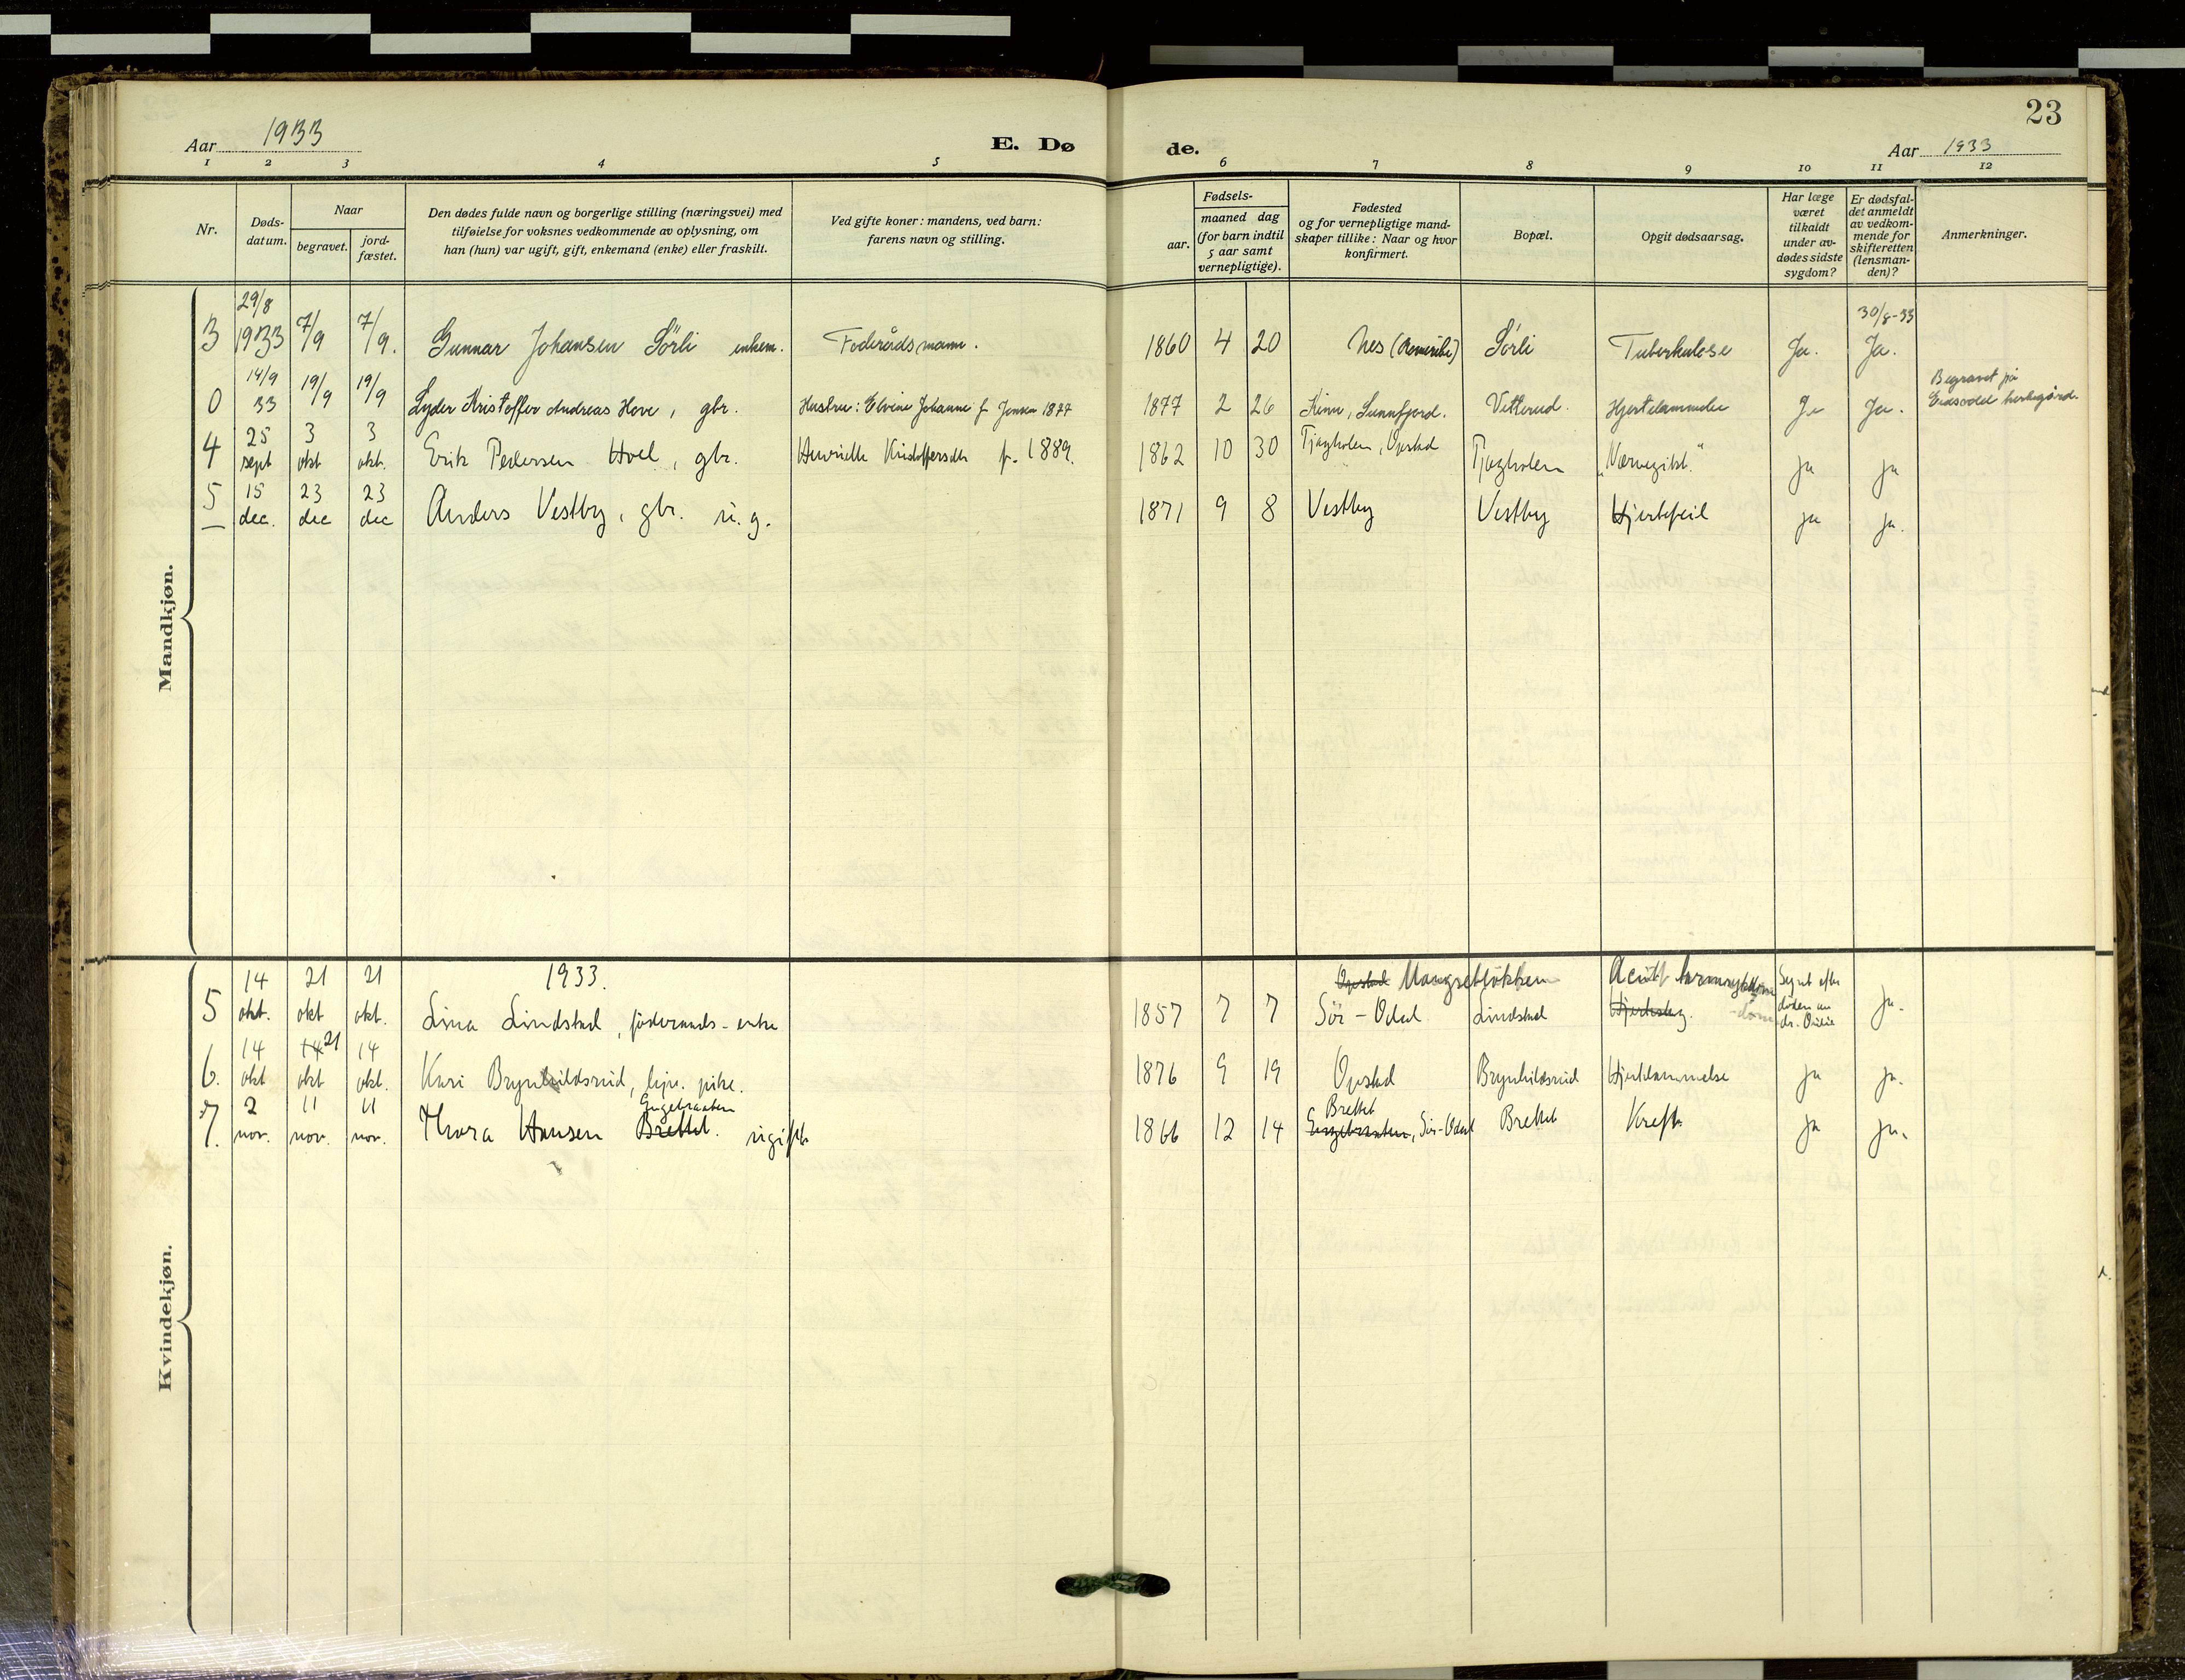 23
Aar 1933 E. Døde. Aar 1933
1 2 3 4 5 6 7 8 9 10 11 12
Nr.
Døds-
datum.
Naar
begravet.
jord-
fæstet.
Den dødes fulde navn og borgerlige stilling (næringsvei) med
tilføielse for voksnes vedkommende av oplysning, om
han (hun) var ugift, gift, enkemand (enke) eller fraskilt.
Ved gifte koner: mandens, ved barn:
farens navn og stilling.
Fødsels-
aar.
maaned dag
(for barn indtil
5 aar samt
vernepligtige).
Fødested
og for vernepligtige mand-
skaper tillike: Naar og hvor
konfirmert.
Bopæl.
Opgit dødsaarsag.
Har læge
været
tilkaldt
under av-
dødes sidste
sygdom?
Er dødsfal-
det anmeldt
av vedkom-
mende for
skifteretten
(lensman-
den)?
Anmerkninger.
Mandkjøn.
29/8 30/8-33
3 1933 7/9 7/9. Gunnar Johansen Sörli enkem. Föderådsmann. 1860 4 20 Nes (Romerike) Sörli Tuberkulose Ja. Ja.
14/9 Begravet på
0 33 19/9 19/9 Lyder Kristoffer Andreas Hove, gbr. Hustru: Elvine Johanne f. Jensen 1877 1877 2 26 Kinn, Sunnfjord. Vitterud. Hjertelammelse Ja Ja. Eidsvold kirkegård.
4 25 sept 3 okt 3 okt. Erik Pedersen Hoel, gbr. Henriette Kristoffersdtr f. 1889. 1862 10 30 Tjagholen, Opstad Tjagholen ja ja
5 15 dec. 23 dec 23 dec Anders Vestby, gbr. u. g. 1871 9 8 Vestby Vestby Hjertefeil ja ja.
Kvindekjøn.
1933.
5 14 okt. 21 okt 21 okt. Lina Lindstad, föderaads-enke 1857 7 7 Opstad Mangset Sör-Odal Lindstad Acutt Hjerteslag Synt efter döden av dr. ja.
6. 14 okt 14 21 okt 14 okt. Kari Brynhildsrud, pike. 1876 9 19 Opstad Brynhildsrud Hjertelammelse ja ja.
Engebraaten Brettet
7. 2 nov. 11 nov. 11 nov. Thora Hansen Brettet. ugift 1866 12 14 Engebraaten, Sör-Odal Brettet Kreft ja ja.